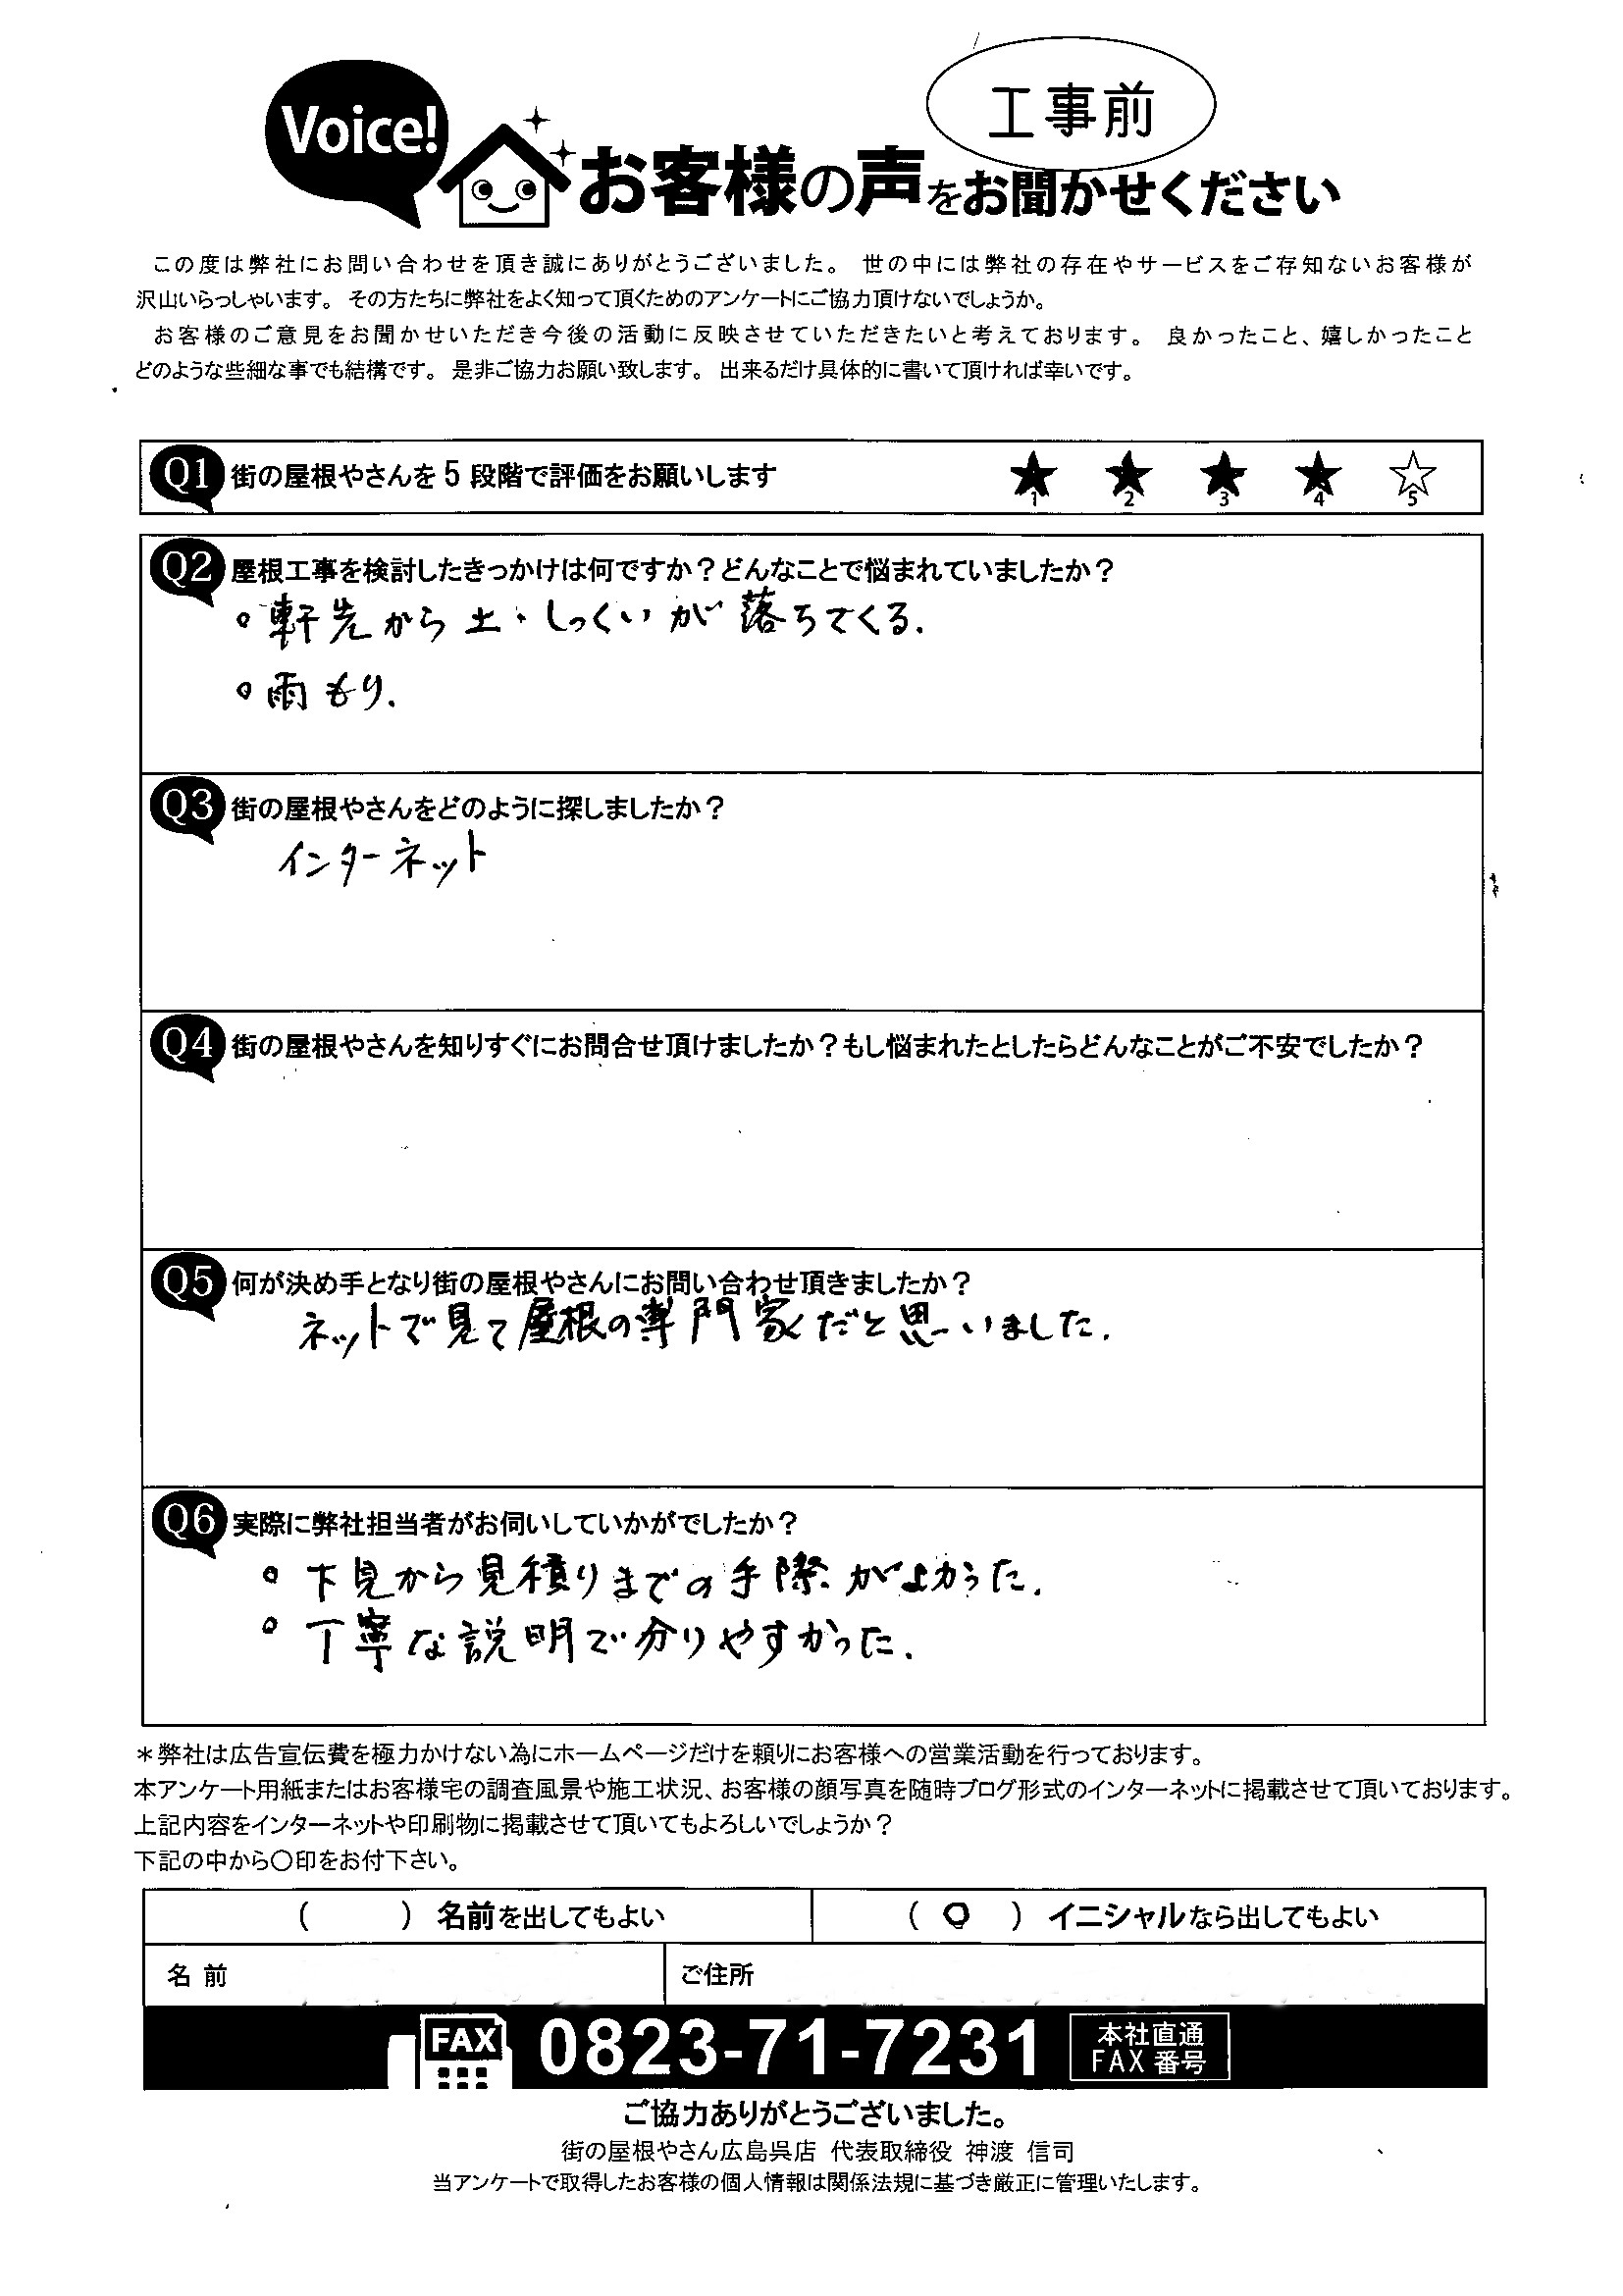 Voice!
工事前
お客様の声をお聞かせください
この度は弊社にお問い合わせを頂き誠にありがとうございました。 世の中には弊社の存在やサービスをご存知ないお客様が
沢山いらっしゃいます。 その方たちに弊社をよく知って頂くためのアンケートにご協力頂けないでしょうか。
お客様のご意見をお聞かせいただき今後の活動に反映させていただきたいと考えております。 良かったこと、嬉しかったこと
どのような些細な事でも結構です。 是非ご協力お願い致します。 出来るだけ具体的に書いて頂ければ幸いです。
Q1 街の屋根やさんを 5 段階で評価をお願いします ★1 ★2 ★3 ★4 ☆5
Q2 屋根工事を検討したきっかけは何ですか？どんなことで悩まれていましたか？
○ 軒先から土・しっくいが落ちてくる.
○ 雨もり.
Q3 街の屋根やさんをどのように探しましたか？
インターネット
Q4 街の屋根やさんを知りすぐにお問合せ頂けましたか？もし悩まれたとしたらどんなことがご不安でしたか？
Q5 何が決め手となり街の屋根やさんにお問い合わせ頂きましたか？
ネットで見て屋根の専門家だと思いました.
Q6 実際に弊社担当者がお伺いしていかがでしたか？
○ 下見から見積りまでの手際がよかった.
○ 丁寧な説明で分りやすかった.
＊弊社は広告宣伝費を極力かけない為にホームページだけを頼りにお客様への営業活動を行っております。
本アンケート用紙またはお客様宅の調査風景や施工状況、お客様の顔写真を随時ブログ形式のインターネットに掲載させて頂いております。
上記内容をインターネットや印刷物に掲載させて頂いてもよろしいでしょうか？
下記の中から〇印をお付下さい。
（　　）名前を出してもよい （ ○ ）イニシャルなら出してもよい
名 前 ご住所
FAX 0823-71-7231 本社直通
FAX 番号
ご協力ありがとうございました。
街の屋根やさん広島呉店 代表取締役 神渡 信司
当アンケートで取得したお客様の個人情報は関係法規に基づき厳正に管理いたします。